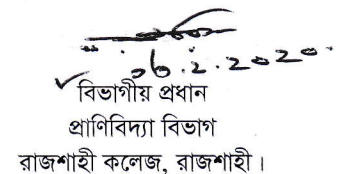 ০৬.২.২০২০.
বিভাগীয় প্রধান
প্রাণিবিদ্যা বিভাগ
রাজশাহী কলেজ, রাজশাহী।